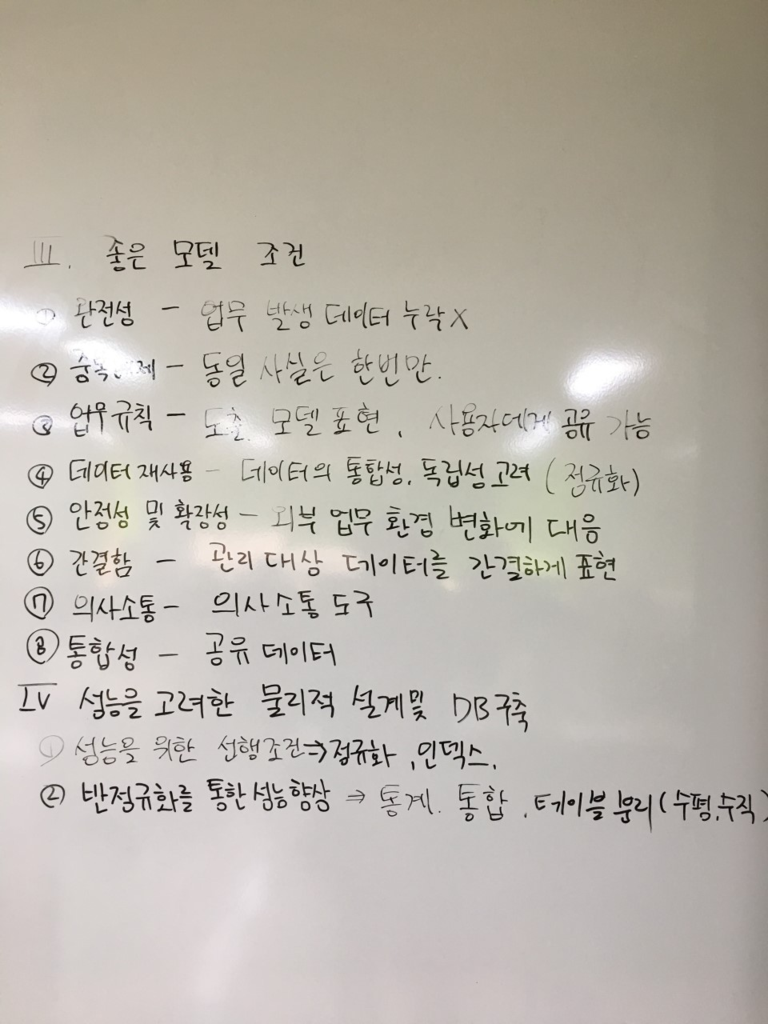 III. 좋은 모델 조건
① 완전성 - 업무 발생 데이터 누락 X
② 중복배제 - 동일 사실은 한번만.
③ 업무규칙 - 도출, 모델 표현, 사용자에게 공유 가능
④ 데이터 재사용 - 데이터의 통합성, 독립성 고려 (정규화)
⑤ 안정성 및 확장성 - 외부 업무 환경 변화에 대응
⑥ 간결함 - 관리 대상 데이터를 간결하게 표현
⑦ 의사소통 - 의사소통 도구
⑧ 통합성 - 공유 데이터
IV 성능을 고려한 물리적 설계 및 DB구축
① 성능을 위한 선행조건 ⇒ 정규화, 인덱스,
② 반정규화를 통한 성능향상 ⇒ 통계, 통합, 테이블 분리 (수평, 수직)